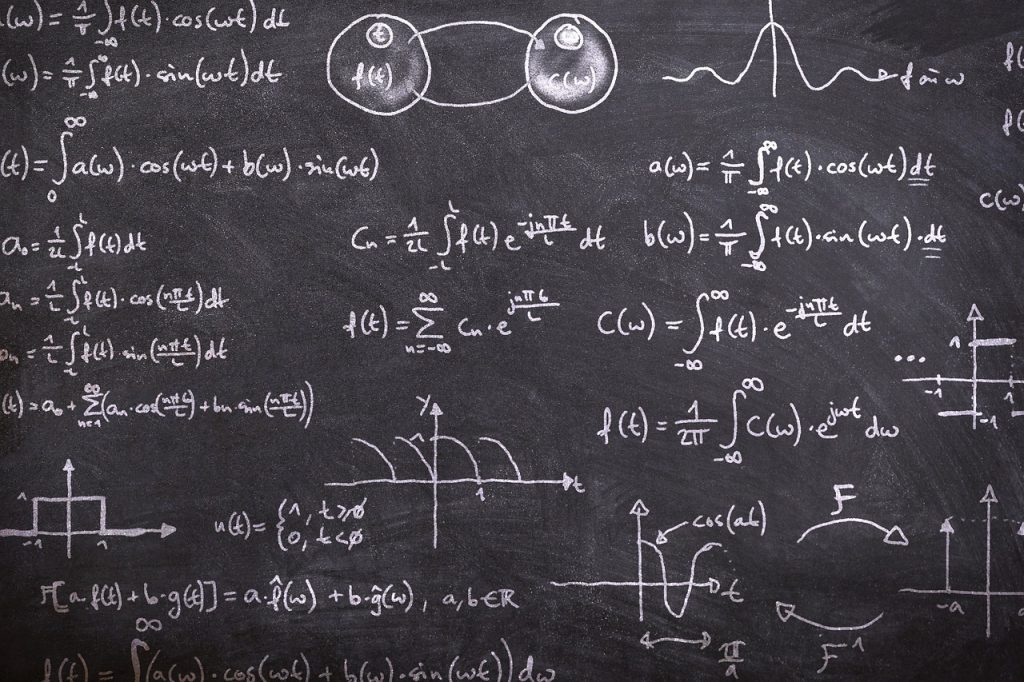 (ω) = 1/π ∫_{-∞} f(t) · cos(ωt) dt
(ω) = 1/π ∫_{-∞}^{∞} f(t) · sin(ωt) dt
t
f(t)
C(ω)
f an ω
f(
f(
(t) = ∫_0^∞ a(ω) · cos(ωt) + b(ω) · sin(ωt)
a(ω) = 1/π ∫_{-∞}^{∞} f(t) · cos(ωt) dt
C(ω)
a₀ = 1/2L ∫_{-L}^{L} f(t) dt
Cn = 1/2L ∫_{-L}^{L} f(t) e^{-jnπt/L} dt
b(ω) = 1/π ∫_{-∞}^{∞} f(t) · sin(ωt) · dt
an = 1/L ∫_{-L}^{L} f(t) · cos(nπt/L) dt
f(t) = ∑_{n=-∞}^{∞} Cn · e^{jnπt/L}
C(ω) = ∫_{-∞}^{∞} f(t) · e^{-jnπt/L} dt
bn = 1/L ∫_{-L}^{L} f(t) · sin(nπt/L) dt
... 1
-1 1
-1
(t) = a₀ + ∑_{n=1}^{∞} (an · cos(nπt/L) + bn · sin(nπt/L))
y
1
1 t
f(t) = 1/2π ∫_{-∞}^{∞} C(ω) · e^{jωt} dω
1
-1 1
u(t) = { 1, t>0
0, t<0
cos(at)
t
π/a
F
F⁻¹
-a
F[a·f(t) + b·g(t)] = a·f̂(ω) + b·ĝ(ω), a,b∈ℝ
f(t) = ∫^∞ (a(ω) · cos(ωt) + b(ω) · sin(ωt)) dω